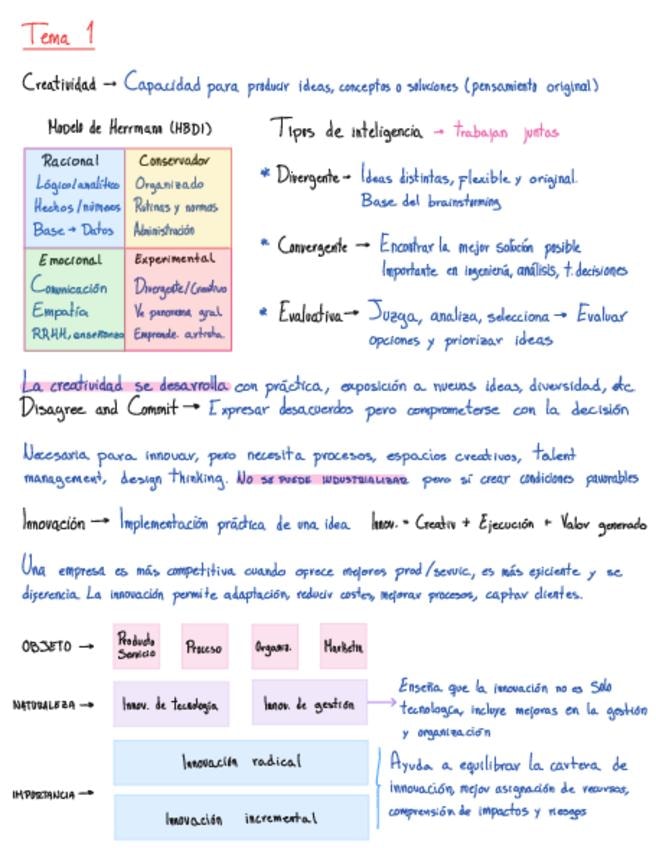 Tema 1
Creatividad → Capacidad para producir ideas, conceptos o soluciones (pensamiento original)
Modelo de Herrmann (HBDI)
Racional
Lógico/analítico
Hechos/números
Base → Datos
Conservador
Organizado
Rutinas y normas
Administración
Emocional
Comunicación
Empatía
RRHH, enseñanza
Experimental
Divergente/Creativo
Ve panorama gral.
Emprende. artista.
Tipos de inteligencia → trabajan juntas
* Divergente → Ideas distintas, flexible y original.
Base del brainstorming
* Convergente → Encontrar la mejor solución posible
Importante en ingeniería, análisis, t. decisiones
* Evaluativa → Juzga, analiza, selecciona → Evaluar
opciones y priorizar ideas
La creatividad se desarrolla con práctica, exposición a nuevas ideas, diversidad, etc
Disagree and Commit → Expresar desacuerdos pero comprometerse con la decisión
Necesaria para innovar, pero necesita procesos, espacios creativos, talent
management, design thinking. NO SE PUEDE INDUSTRIALIZAR pero sí crear condiciones favorables
Innovación → Implementación práctica de una idea Innov. = Creativ + Ejecución + Valor generado
Una empresa es más competitiva cuando ofrece mejores prod/servic, es más eficiente y se
diferencia. La innovación permite adaptación, reducir costes, mejorar procesos, captar clientes.
OBJETO →
Producto
Servicio
Proceso
Organiz.
Marketin
NATURALEZA →
Innov. de tecnología
Innov. de gestión
Enseña que la innovación no es solo
tecnología, incluye mejoras en la gestión
y organización
IMPORTANCIA →
Innovación radical
Innovación incremental
Ayuda a equilibrar la cartera de
innovación, mejor asignación de recursos,
comprensión de impactos y riesgos